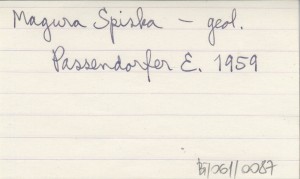 Magura Spiska – geol.
Passendorfer E. 1959
B/061/0087